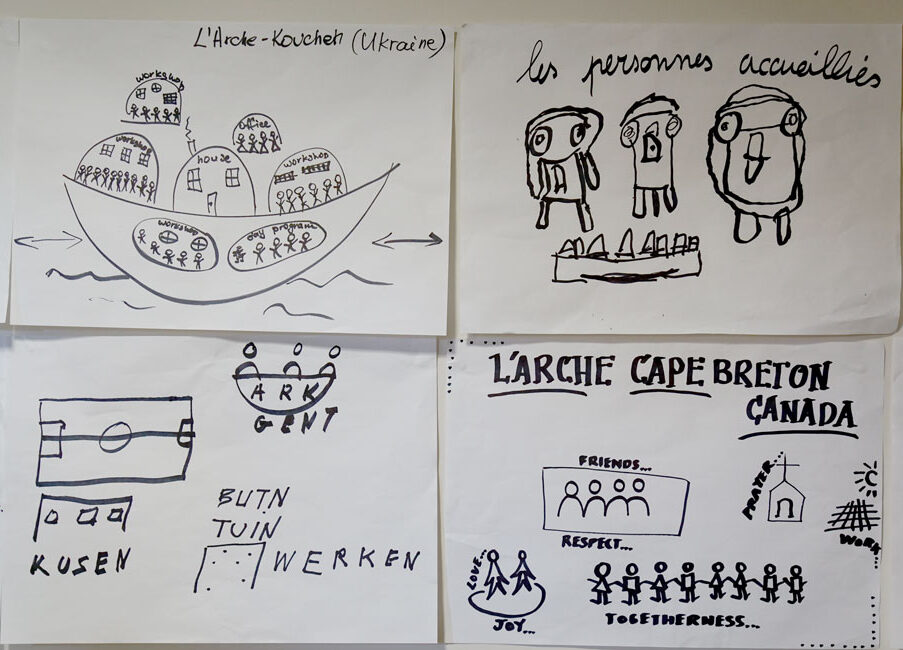 L'Arche-Kovcheh (Ukraine)
workshop
office
workshop
house
workshop
workshop
day program
les personnes accueilliés
ARK
GENT
KUSEN
BUTN
TUIN
WERKEN
L'ARCHE CAPE BRETON
CANADA
FRIENDS...
PRAYER...
WORK
RESPECT...
LOVE...
JOY...
TOGETHERNESS...